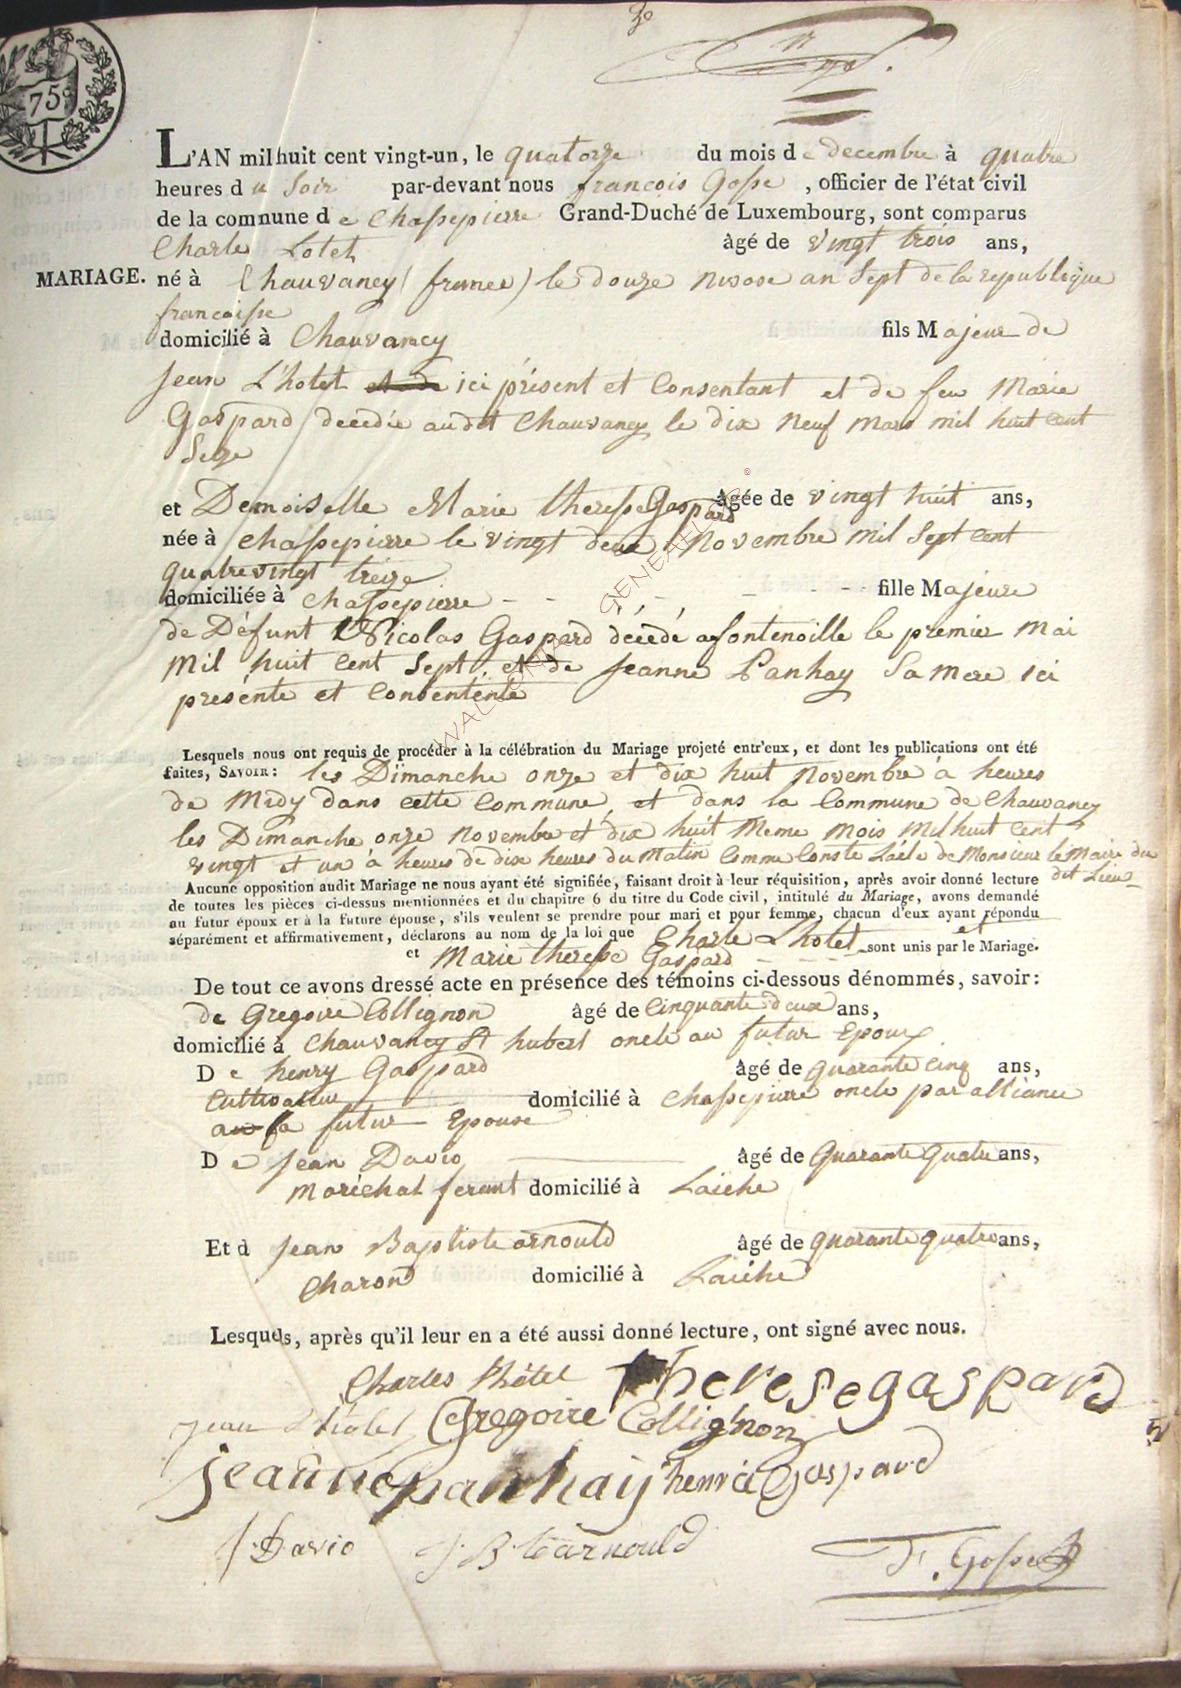 3e
75c
L'AN mil huit cent vingt-un, le quatorze du mois de decembre à quatre
heures du Soir par-devant nous francois Gosse, officier de l'état civil
de la comnune de Chassepierre Grand-Duché de Luxembourg, sont comparus
Charle Lotet âgé de vingt trois ans,
MARIAGE. né à Chauvancy (france) le douze nivose an Sept de la republique
francaisse
domicilié à Chauvancy fils Majeur de
Jean L'hotet et de ici présent et Consentant et de feu Marie
Gaspard decedée audit Chauvancy le dix neuf mars mil huit cent
Seize
et Demoiselle Marie theresse Gaspard âgée de vingt huit ans,
née à chassepierre le vingt deux Novembre mil Sept Cent
quatrevingt treize
domiciliée à chassepierre - - - - - - fille Majeure
de Défunt Nicolas Gaspard décédé a fontenoille le premier Mai
Mil huit Cent Sept et de Jeanne Panhay Sa mere ici
presénte et Consenténte
WALLONIA GENEALOGIE ©
Lesquels nous ont requis de procéder à la célébration du Mariage projeté entr'eux, et dont les publications ont été
faites, SAVOIR: les Dimanche onze et dix huit novembre à heures
de Midy dans cette Commune, et dans la Commune de Chauvancy
les Dimanche onze novembre et dix huit Meme Mois Mil huit Cent
vingt et un à heures de dix heures du Matin Comme Conste l'acte de Monsieur le Maire du
dit Lieu
Aucune opposition audit Mariage ne nous ayant été signifiée, faisant droit à leur réquisition, après avoir donné lecture
de toutes les pièces ci-dessus mentionnées et du chapitre 6 du titre du Code civil, intitulé du Mariage, avons demandé
au futur époux et à la future épouse, s'ils veulent se prendre pour mari et pour femme, chacun d'eux ayant répondu
séparément et affirmativement, déclarons au nom de la loi que Charle L'hotet et
et Marie theresse Gaspard - - - - sont unis par le Mariage.
De tout ce avons dressé acte en présence des témoins ci-dessous dénommés, savoir:
de Gregoire Collignon âgé de Cinquante deux ans,
domicilié à Chauvancy St hubert oncle au futur Epoux
De henry Gaspard âgé de quarante Cinq ans,
Cultivateur domicilié à Chassepierre oncle par alliance
au la futur Epouse
De Jean David âgé de Quarante quatre ans,
Maréchal ferant domicilié à Laiche
Et d Jean Baptiste arnould âgé de quarante quatre ans,
Charon domicilié à Laiche
Lesquels, après qu'il leur en a été aussi donné lecture, ont signé avec nous.
Charles l'hôtel therese gaspard
jean l'hotel Gregoire Collignon
jeanne panhay henri Gaspard
J: David J B arnould
F. Gosse